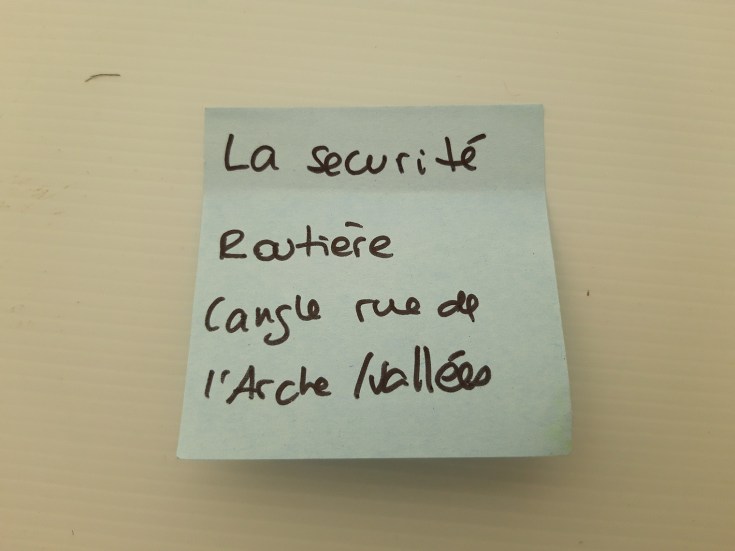 La securité
Routière
(angle rue de
l'Arche /Vallées